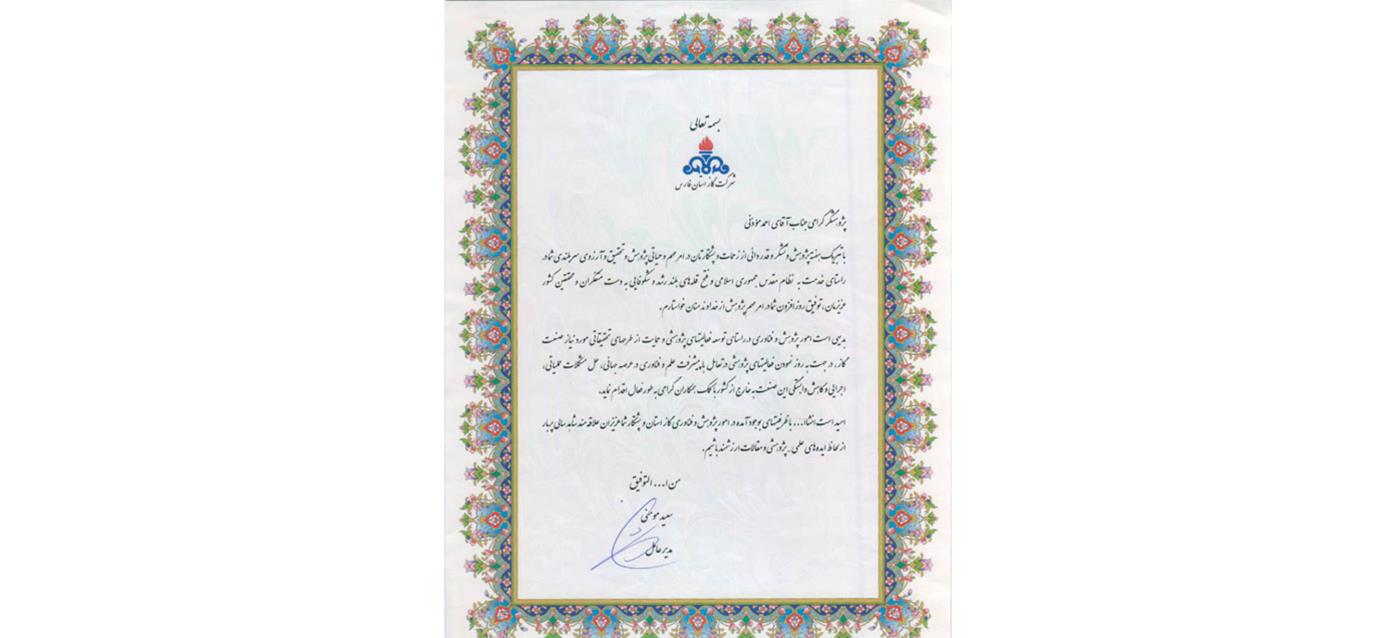 بسمه تعالی
شرکت گاز استان فارس
پژوهشگر گرامی جناب آقای احمد مؤذنی
با تبریک هفته پژوهش و تشکر و قدردانی از زحمات و پشتکارتان در امر مهم و حیاتی پژوهش و تحقیق و آرزوی سربلندی شما در
راستای خدمت به نظام مقدس جمهوری اسلامی و فتح قله‌های بلند رشد و شکوفایی به دست متفکران و محققین کشور
عزیزمان، توفیق روز افزون شما در امر مهم پژوهش از خداوند منان خواستارم.
بدیهی است امور پژوهش و فناوری در راستای توسعه فعالیتهای پژوهشی و حمایت از طرحهای تحقیقاتی مورد نیاز صنعت
گاز، در جهت به روز نمودن فعالیتهای پژوهشی در تعامل با پیشرفت علم و فناوری در عرصه جهانی، حل مشکلات عملیاتی،
اجرایی و کاهش وابستگی این صنعت به خارج از کشور با کمک همکاران گرامی به طور فعال اقدام نماید.
امید است انشاا... با ظرفیتهای بوجود آمده در امور پژوهش و فناوری گاز استان و پشتکار شما عزیزان علاقه مند شاهد سالی پربار
از لحاظ ایده‌های علمی ـ پژوهشی و مقالات ارزشمند باشیم.
من ا... التوفیق
سعید مومنی
مدیر عامل